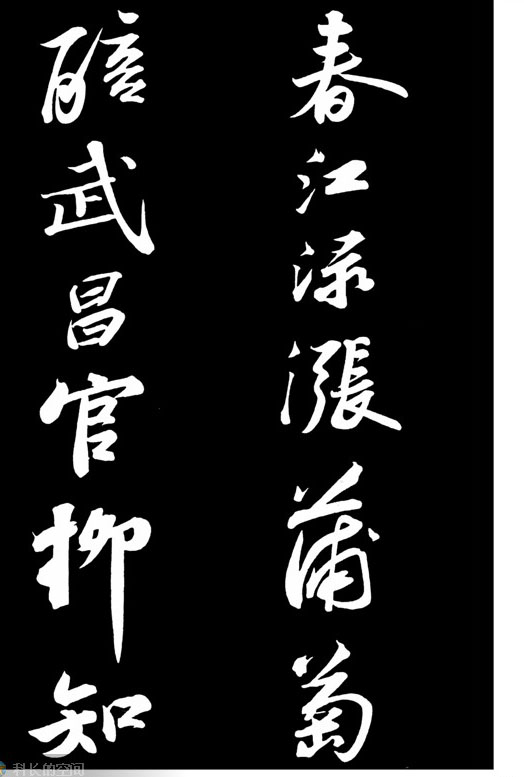 春江渌漲蒲萄
醅武昌官柳知
科长的空间